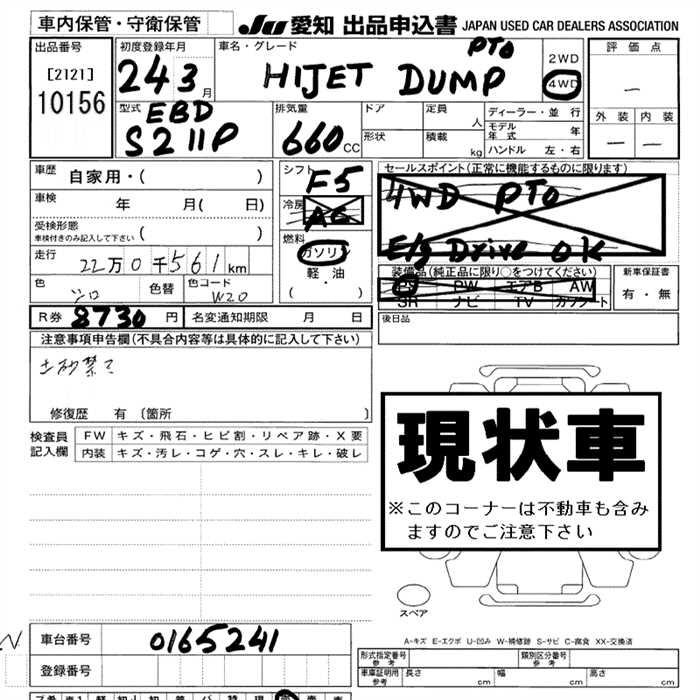 車内保管・守衛保管
JU 愛知 出品申込書 JAPAN USED CAR DEALERS ASSOCIATION
出品番号
[2121]
10156
初度登録年月
24 3 月
車名・グレード
HIJET DUMP PTO
2WD
4WD
評価点
—
外装 内装
— —
型式
EBD
S211P
排気量
660 CC
ドア
形状
定員 人
積載 kg
ディーラー・並行
モデル年式 年
ハンドル 左・右
車歴 自家用・( )
車検 年 月( 日)
受検形態
車検付きのみ記入して下さい ( )
走行 22万0千561km
色 シロ
色替
色コード W20
シフト F5
冷房 AC
燃料
ガソリン
軽・油
( ・ )
セールスポイント(正常に機能するものに限ります)
4WD PTO
E/g Drive OK
装備品(純正品に限り○をつけてください)
PS PW エアB AW
SR ナビ TV カワシート
新車保証書
有・無
R券 8730 円
名変通知期限 月 日
後日品
注意事項申告欄(不具合内容等は具体的に記入して下さい)
土砂禁て
修復歴 有〔箇所 〕
検査員記入欄
FW キズ・飛石・ヒビ割・リペア跡・X要
内装 キズ・汚レ・コゲ・穴・スレ・キレ・破レ
現状車
※このコーナーは不動車も含み
ますのでご注意下さい
スペア
A-キズ E-エクボ U-凹み W-補修跡 S-サビ C-腐食 XX-交換済
車台番号 0165241
登録番号
形式指定番号 参考
類別区分番号 参考
車庫証明用 参考
長さ cm
幅 cm
高さ cm